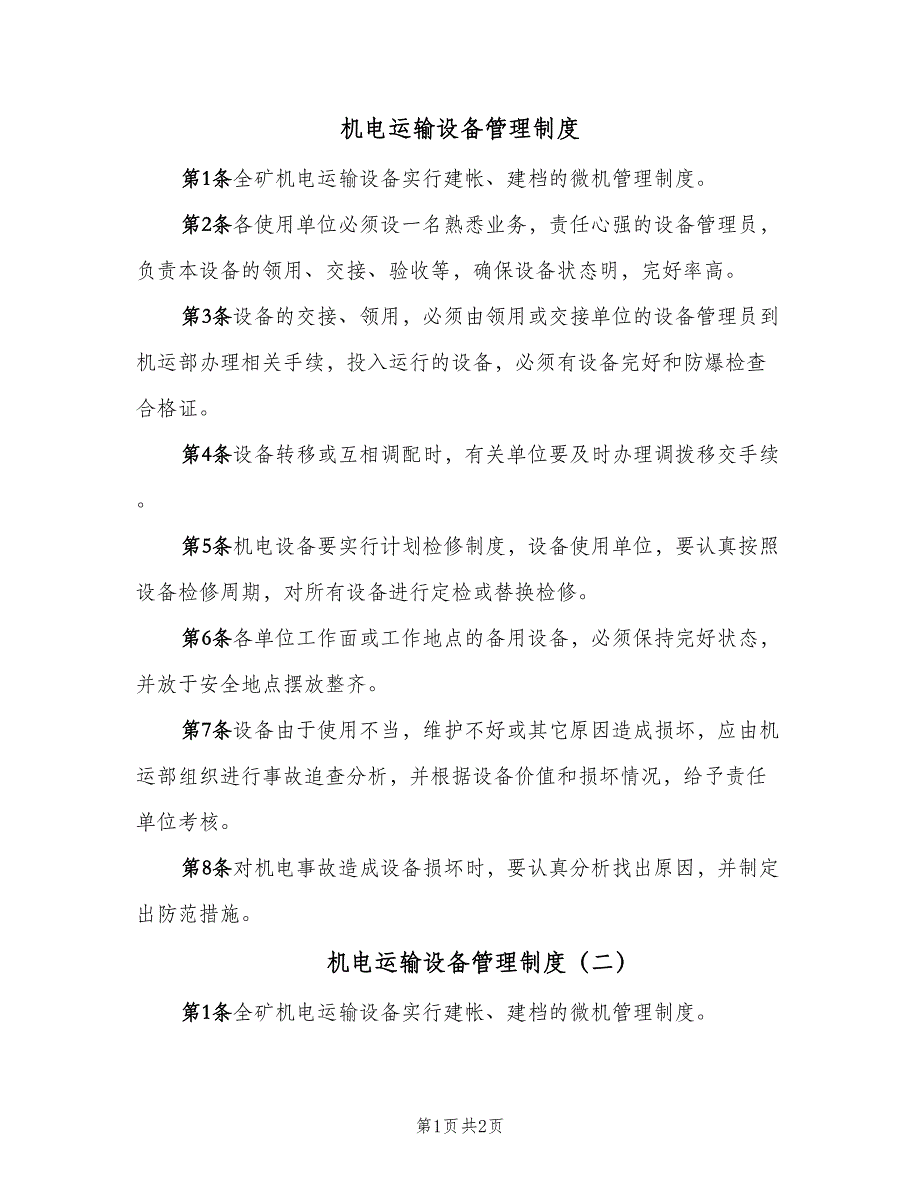 机电运输设备管理制度
第1条全矿机电运输设备实行建帐、建档的微机管理制度。
第2条各使用单位必须设一名熟悉业务，责任心强的设备管理员，
负责本设备的领用、交接、验收等，确保设备状态明，完好率高。
第3条设备的交接、领用，必须由领用或交接单位的设备管理员到
机运部办理相关手续，投入运行的设备，必须有设备完好和防爆检查
合格证。
第4条设备转移或互相调配时，有关单位要及时办理调拨移交手续
。
第5条机电设备要实行计划检修制度，设备使用单位，要认真按照
设备检修周期，对所有设备进行定检或替换检修。
第6条各单位工作面或工作地点的备用设备，必须保持完好状态，
并放于安全地点摆放整齐。
第7条设备由于使用不当，维护不好或其它原因造成损坏，应由机
运部组织进行事故追查分析，并根据设备价值和损坏情况，给予责任
单位考核。
第8条对机电事故造成设备损坏时，要认真分析找出原因，并制定
出防范措施。
机电运输设备管理制度（二）
第1条全矿机电运输设备实行建帐、建档的微机管理制度。
第1页共2页